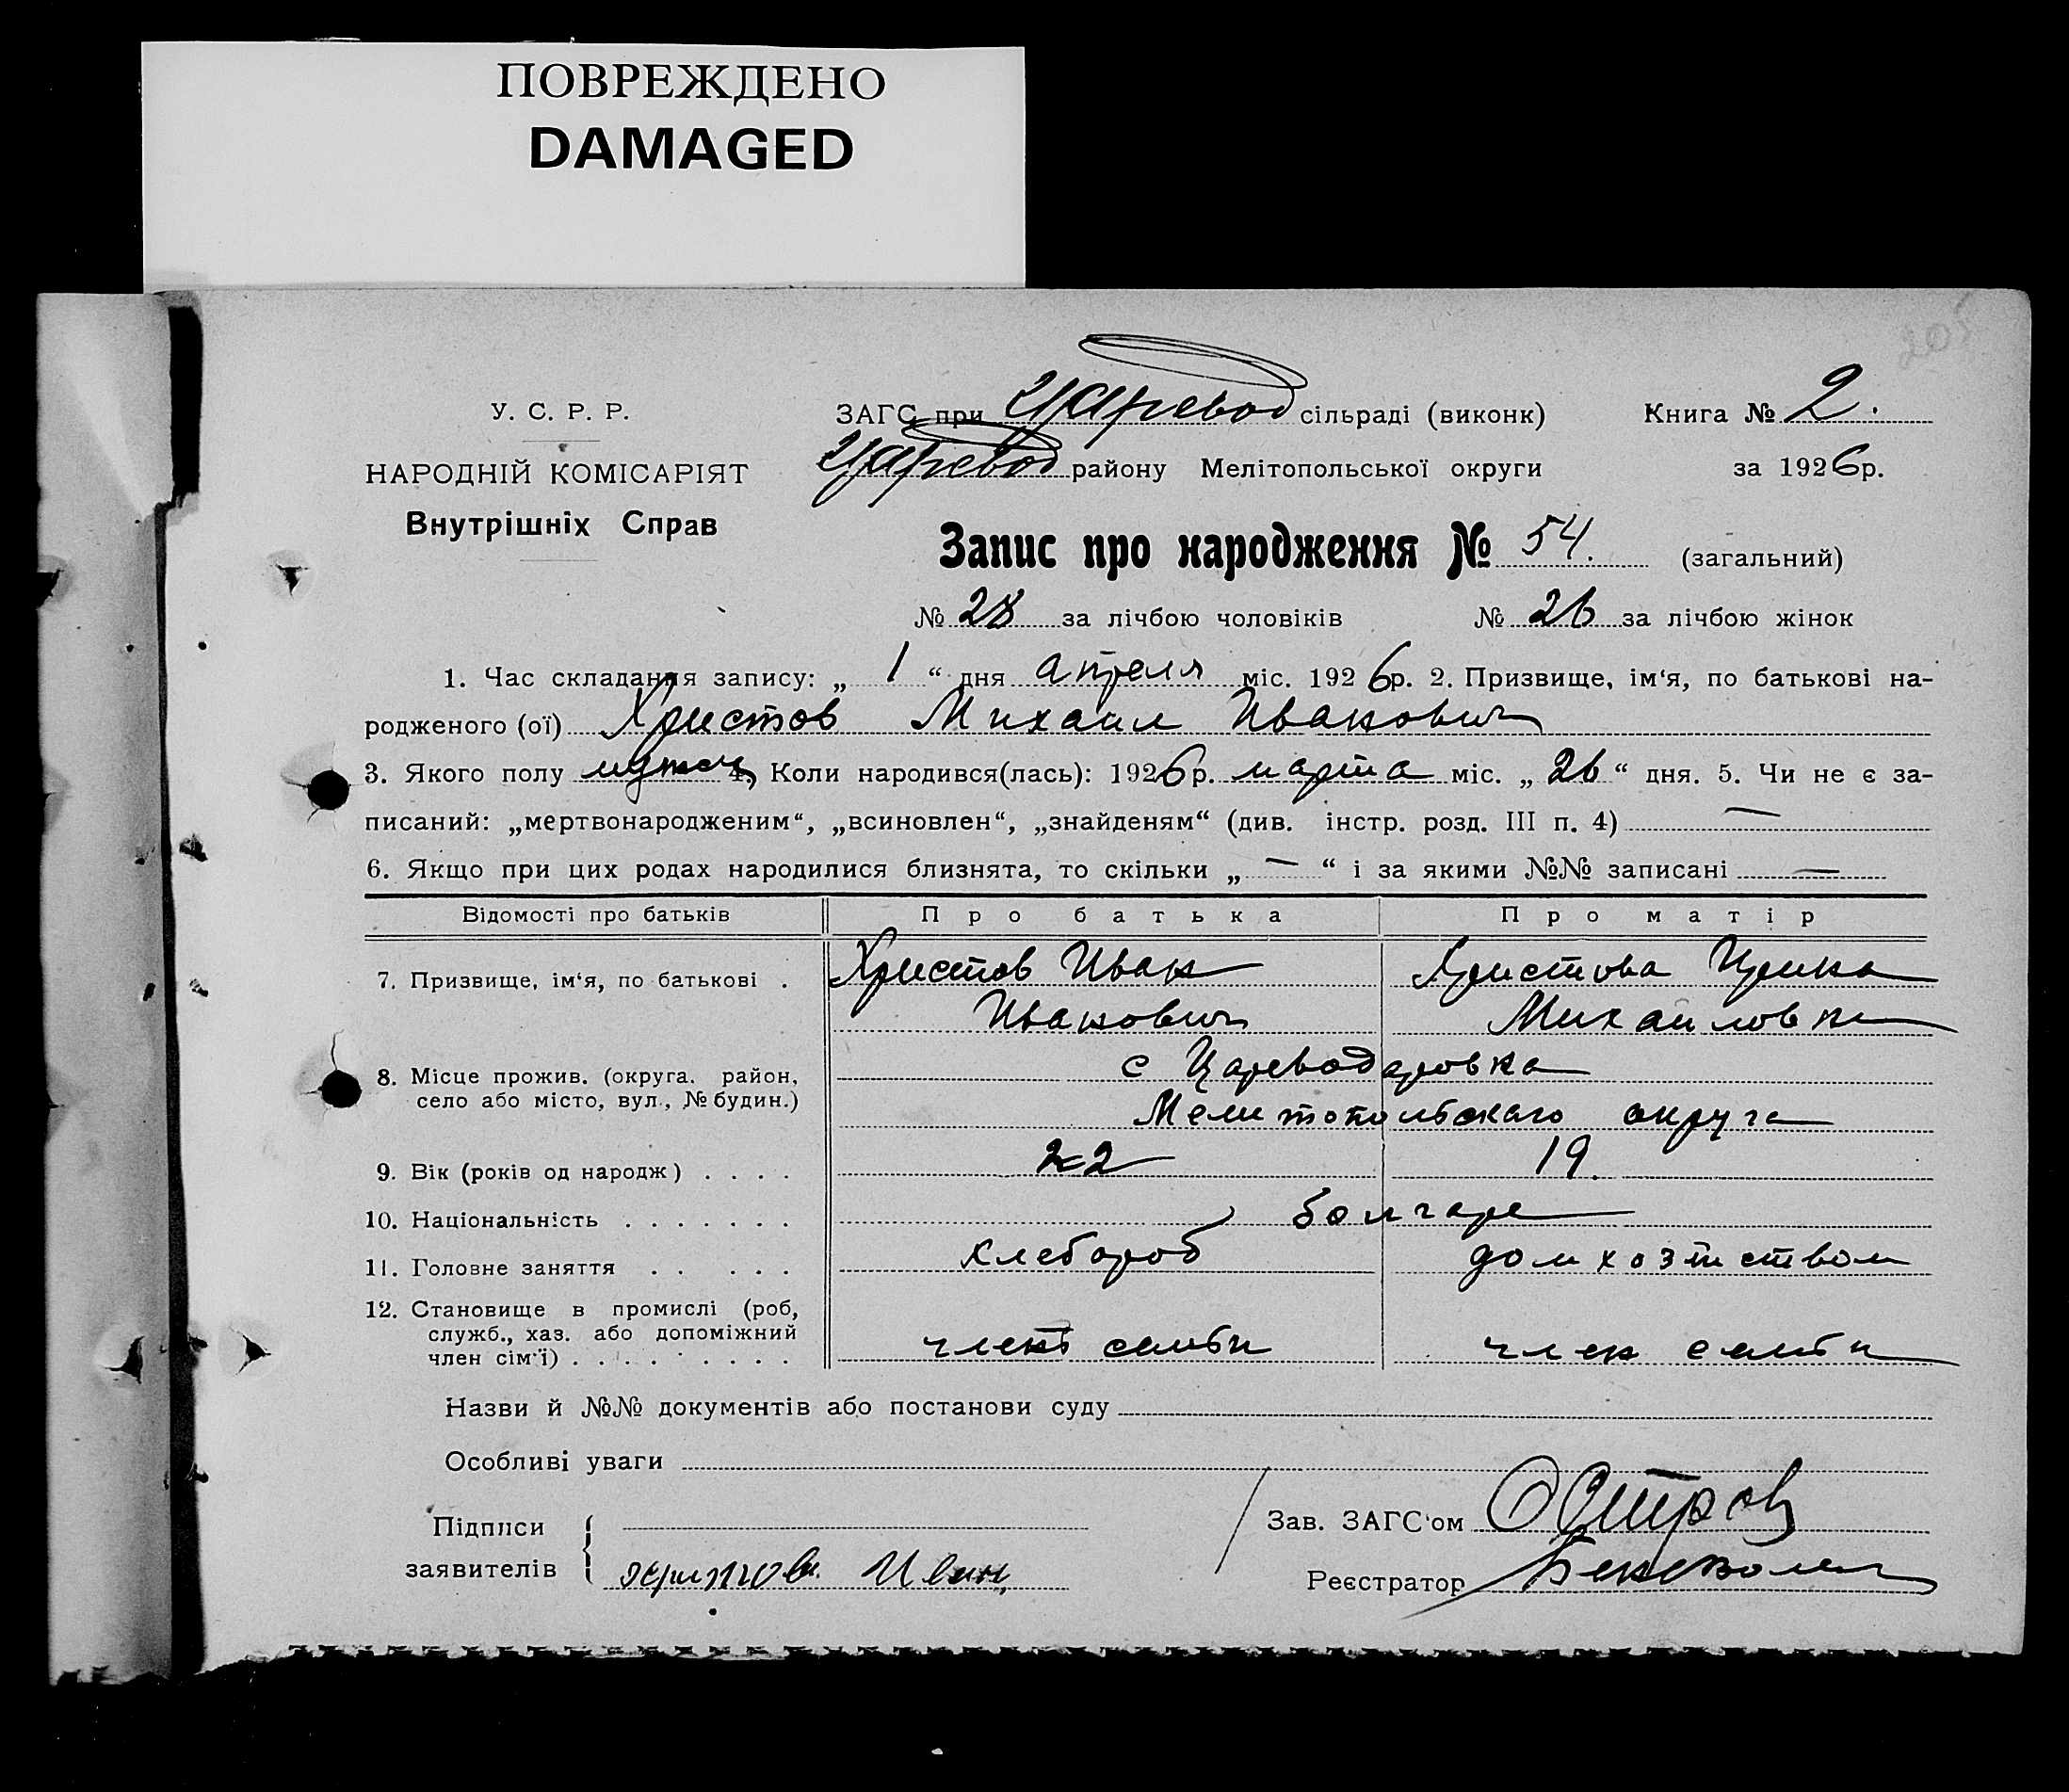 ПОВРЕЖДЕНО
DAMAGED
205
У. С. Р. Р.
НАРОДНІЙ КОМІСАРІЯТ
Внутрішніх Справ
ЗАГС при Царевод сільраді (виконк) Книга № 2.
Царевод району Мелітопольської округи за 1926 р.
Запис про народження № 54. (загальний)
№ 28 за лічбою чоловіків № 26 за лічбою жінок
1. Час складання запису: „ 1 “ дня апреля міс. 1926 р. 2. Призвище, ім‘я, по батькові на-
родженого (ої) Христов Михаил Иванович
3. Якого полу мужск 4. Коли народився(лась): 1926 р. марта міс. „ 26 “ дня. 5. Чи не є за-
писаний: „мертвонародженим“, „всиновлен“, „знайденям“ (див. інстр. розд. III п. 4) —
6. Якщо при цих родах народилися близнята, то скільки „ — “ і за якими №№ записані —
Відомості про батьків Про батька Про матір
7. Призвище, ім‘я, по батькові . Христов Иван Христова Ирина
Иванович Михайловна
8. Місце прожив. (округа. район, с Цареводаровка
село або місто, вул., № будин.) Мелитопольскаго округа
9. Вік (років од народж) . . . . 22 19.
10. Національність . . . . . . . болгаре
11. Головне заняття . . . . . хлебороб домхозяйством
12. Становище в промислі (роб,
служб., хаз. або допоміжний
член сім‘ї) . . . . . . . . . член семьи член семьи
Назви й №№ документів або постанови суду
Особливі уваги
Підписи Зав. ЗАГС‘ом
заявителів Христов Иван Реєстратор